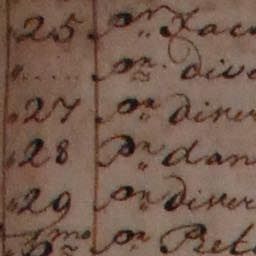 25 Pr
Pr dive
27 Pr diver
28 Pr dan
29 Pr diver
Pr Reto